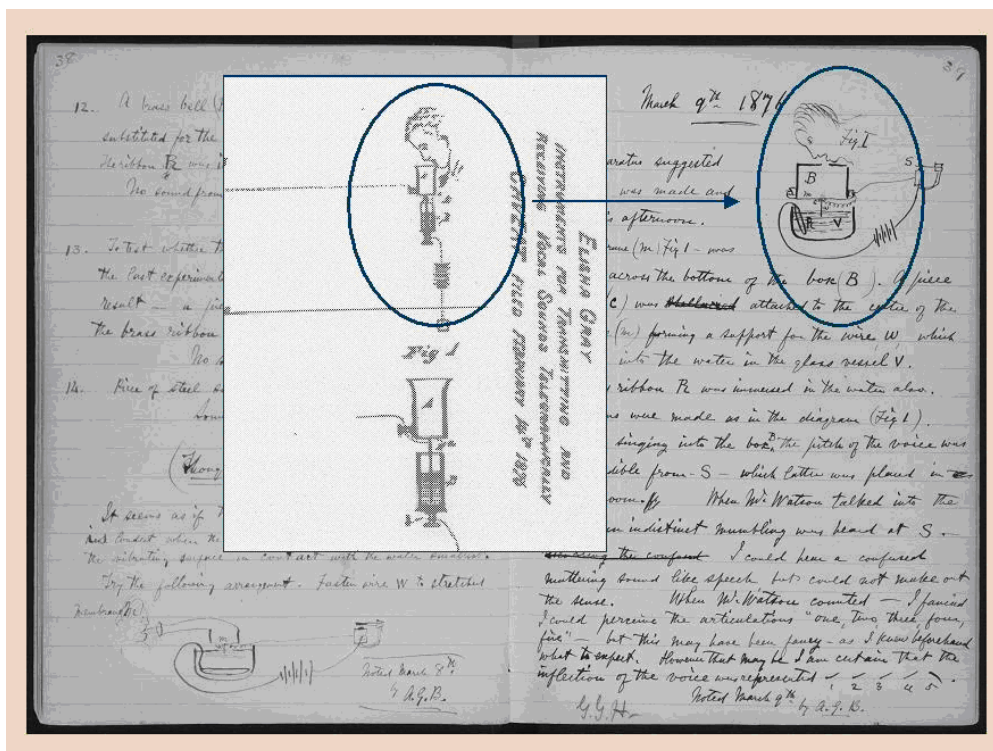 38
12. A brass bell (
substituted for the
the ribbon R was
No sound from
13. To test whether
the last experiment
result — a
the brass ribbon
No
14. Piece of steel
It seems as if
and constant when the
the vibrating surface in contact with the water
Try the following arrangement. Fasten wire W to stretched
membrane
Noted March 8th
by A.G.B.
ELISHA GRAY
INSTRUMENTS FOR TRANSMITTING AND
RECEIVING VOCAL SOUNDS TELEGRAPHICALLY
CAVEAT FILED FEBRUARY 14th 1876
Fig 1
A
39
March 9th 1876
Fig 1
B
S
m
V
suggested
was made and
afternoon.
(m) Fig 1 — was
across the bottom of the box (B). A piece
(C) was attached to the centre of the
(m) forming a support for the wire W, which
into the water in the glass vessel V.
ribbon R was immersed in the water also.
were made as in the diagram (Fig 1).
singing into the box, the pitch of the voice was
from S — which latter was placed in
When Mr Watson talked into the
an indistinct mumbling was heard at S —
I could hear a confused
muttering sound like speech but could not make out
the sense. When Mr Watson counted — I fancied
I could perceive the articulations "one, two, three, four,
five" — but this may have been fancy — as I knew beforehand
what to expect. However that may be I am certain that the
inflection of the voice was represented
1 2 3 4 5
Noted March 9th by A.G.B.
G.G.H.